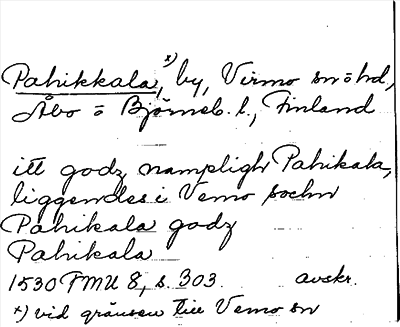 Pahikkala, *) by, Virmo sn o hd,
Åbo o Björneb. l., Finland
itt godz nampligh Pahikala,
liggendes i Vemo sochn
Pahikala godz
Pahikala
1530 FMU 8, s. 303. avskr.
*) vid gränsen till Vemo sn